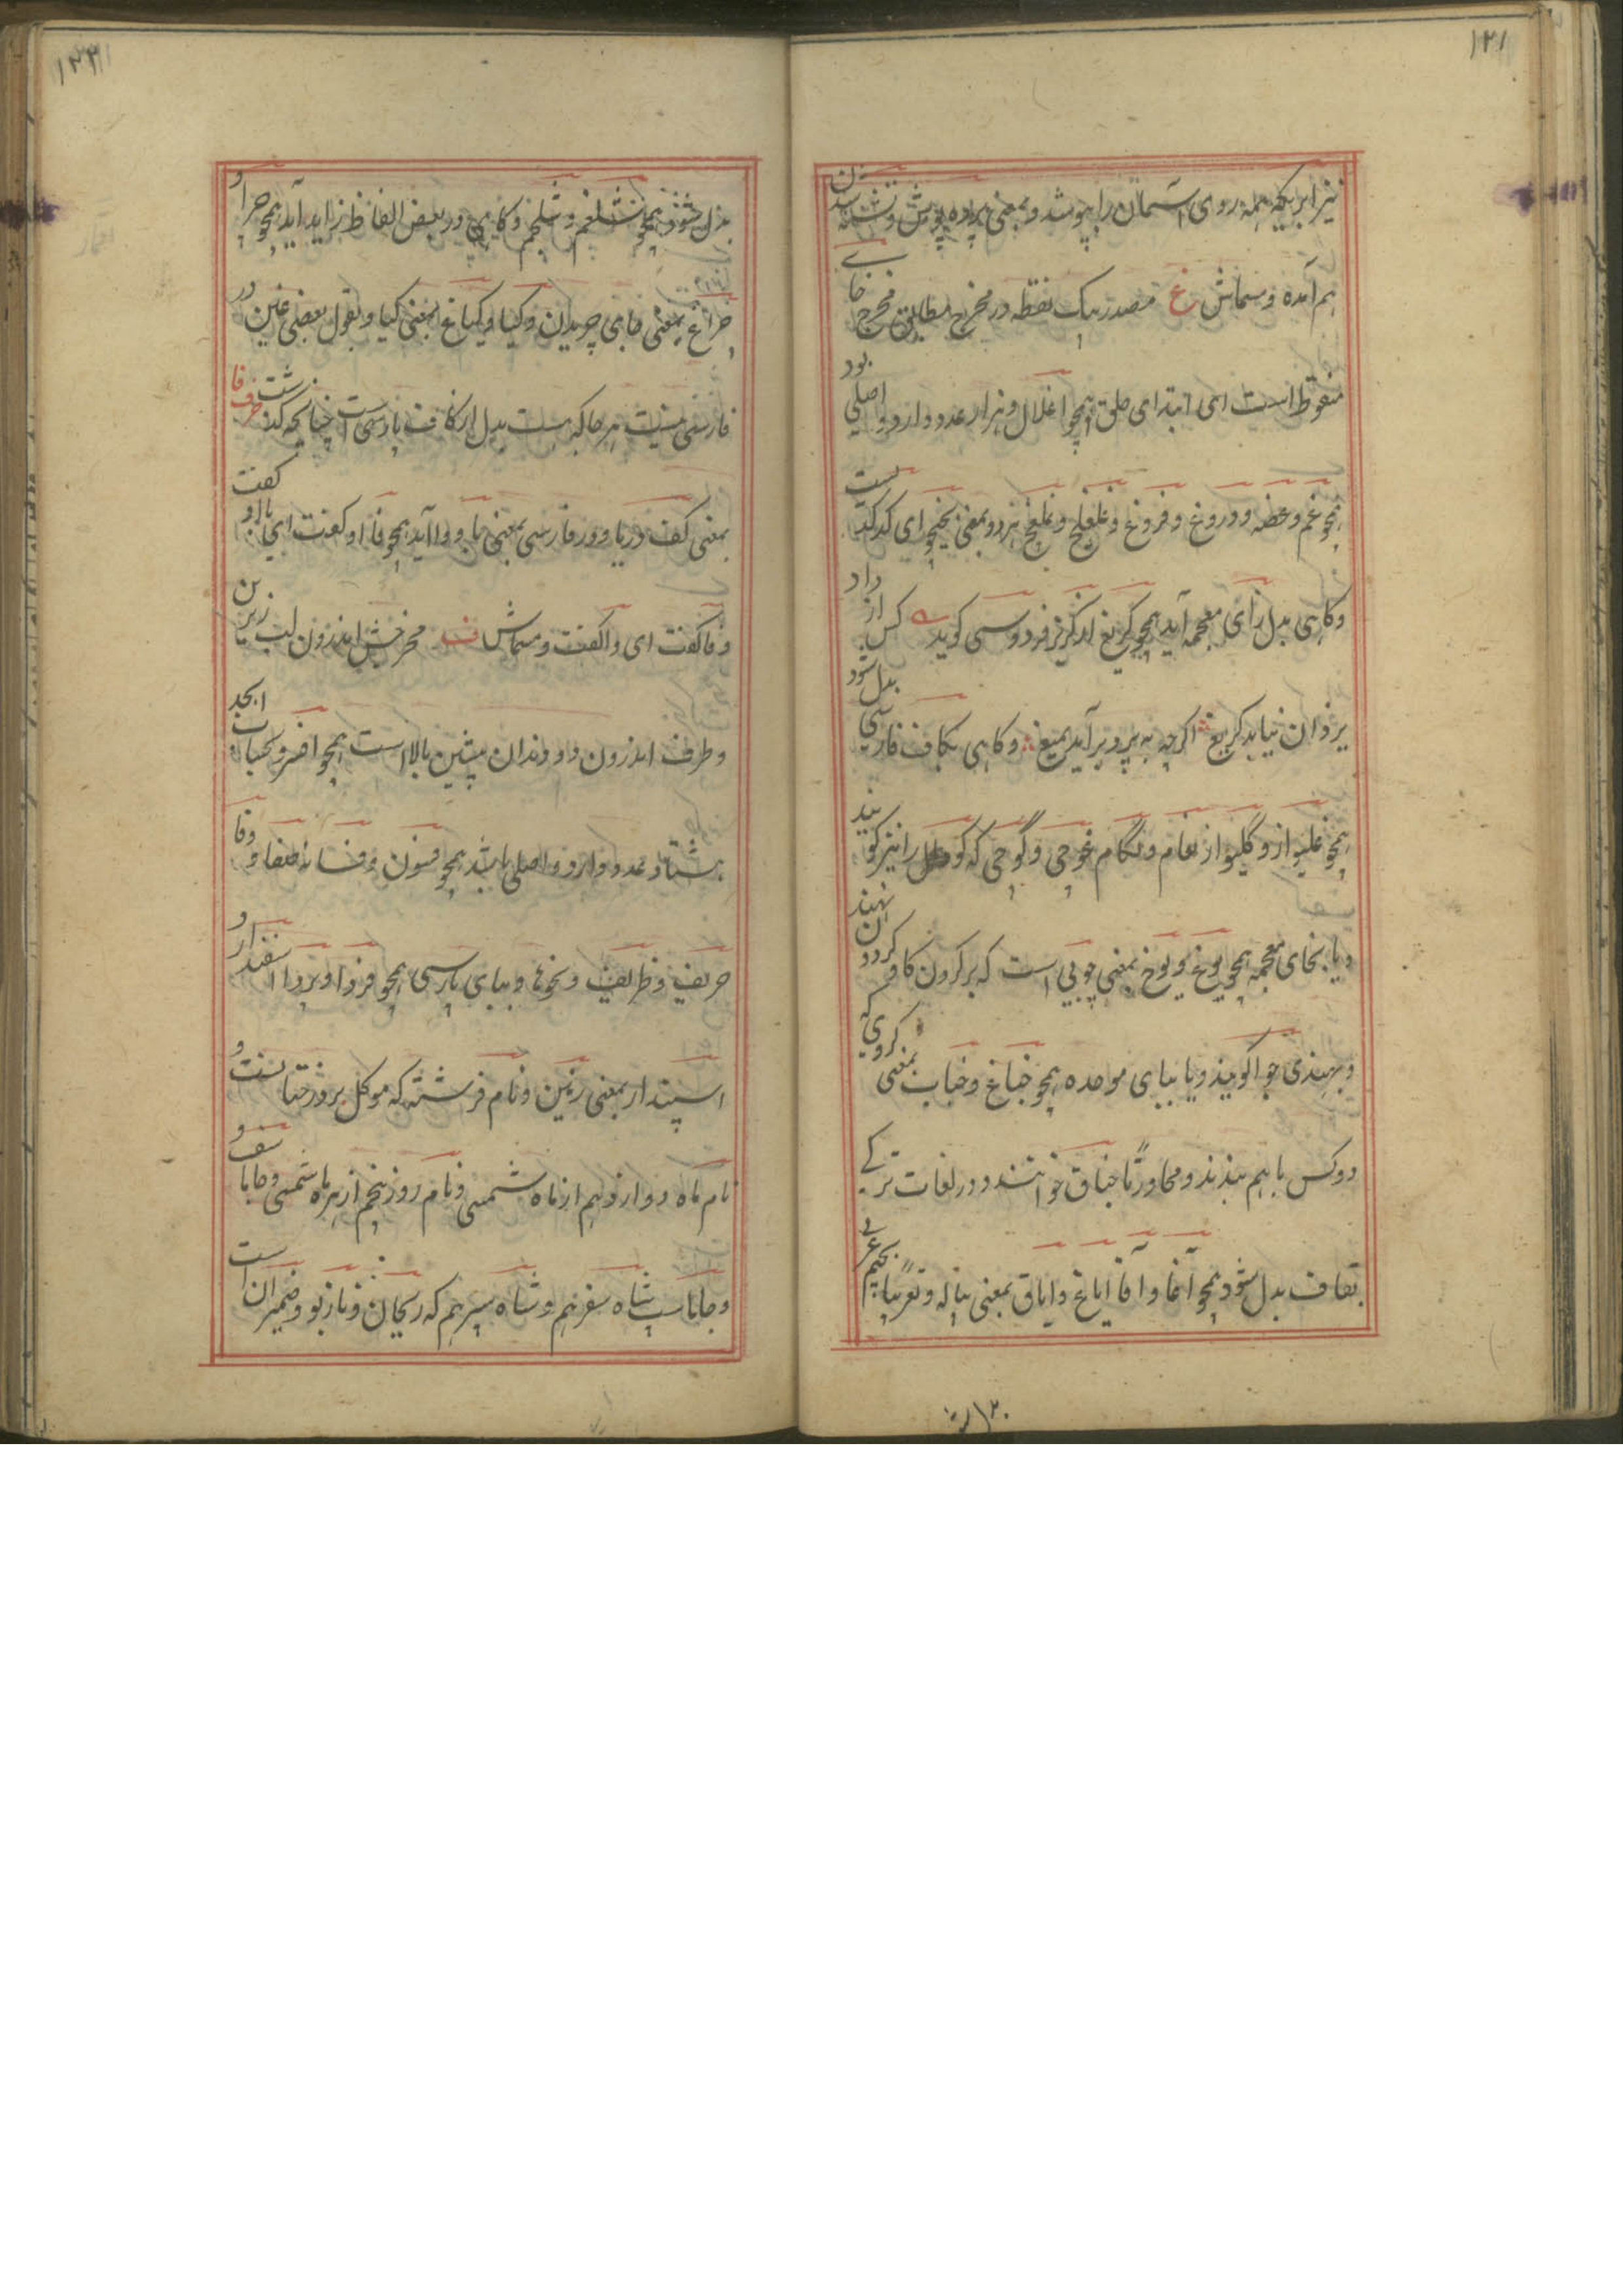 ۱۲۱
نیز ابریکه همه روی آسمان را بپوشد و بمعنی پرده پوش و
هم آمده و سماش غ مصدر بیک نقطه در مخرج مطابق مخرج خای
منقوط است ای ابتدای حلق همچو اغلال و هزار عدد دارد و اصلی بود
همچو غم و غصه و دروغ و فروغ و غلغلیج و غلیغج هر دو بمعنی
و گاهی بدل زای معجمه آید همچو گریغ از گریز فردوسی گوید کس از داد
یزدان نیابد گریغ اگرچه به پرد برآید بمیغ و گاهی بکاف فارسی بدل شود
همچو غلیواز و گلیواز لغام و لگام غوچی و گوچی که گو را نیز گویند
و یا بخای معجمه همچو یوغ و یوخ بمعنی چوبی است که بر گردن گاو گردون نهند
و بهندی جوا گویند و یا ببای موحده همچو جناغ و جناب بمعنی گروی که
دو کس باهم بندند و محاورتا جناق خوانند و در لغات ترکی
بقاف بدل شود همچو آغا و آقا ایاغ و ایاق بمعنی پیاله و تعریبا بجیم عربی
۱۲۲
بدل شود همچو شلغم و شلجم و گاهی در بعض الفاظ زاید آید همچو چرا و
چراغ بمعنی جای چریدن و گیا و گیاغ بمعنی گیا و بقول بعضی غین در
فارسی نیست هر جا که هست بدل از کاف پارسی است چنانچه گذشت حرف فا
بمعنی کف دریا و در فارسی بمعنی با و وا آید همچو فا او گفت ای با او گفت
و فا گفت ای وا گفت و سماش ف مخرجش اندرون لب زیرین
و طرف اندرون دو دندان پیشین بالا است همچو افسر و بحساب ابجد
هشتاد عدد دارد و اصلی باشد همچو فسون و فسانه صفا و وفا
حریف و ظریف و نحوها و ببای پارسی همچو فردا و پردا اسفندار و
اسپندار بمعنی زمین و نام فرشته که موکل بر درختانست و
نام ماه دوازدهم از ماه شمسی و نام روز پنجم از هر ماه شمسی و
شاه سفرهم و شاه سپرهم که ریحان و نازبو و ضمیران است